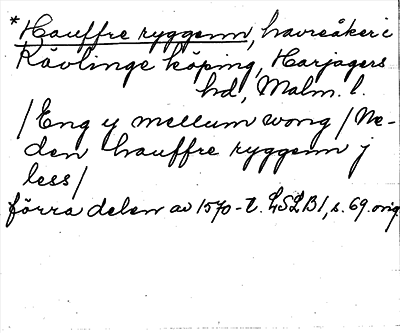 *Hauffre ryggenn, havreåker i
Kävlinge köping, Harjagers
hd, Malm. l.
/Eng y mellum wong/Ne-
den hauffre ryggenn j
less/
förra delen av 1570-t. LSLB1, s. 69. orig.